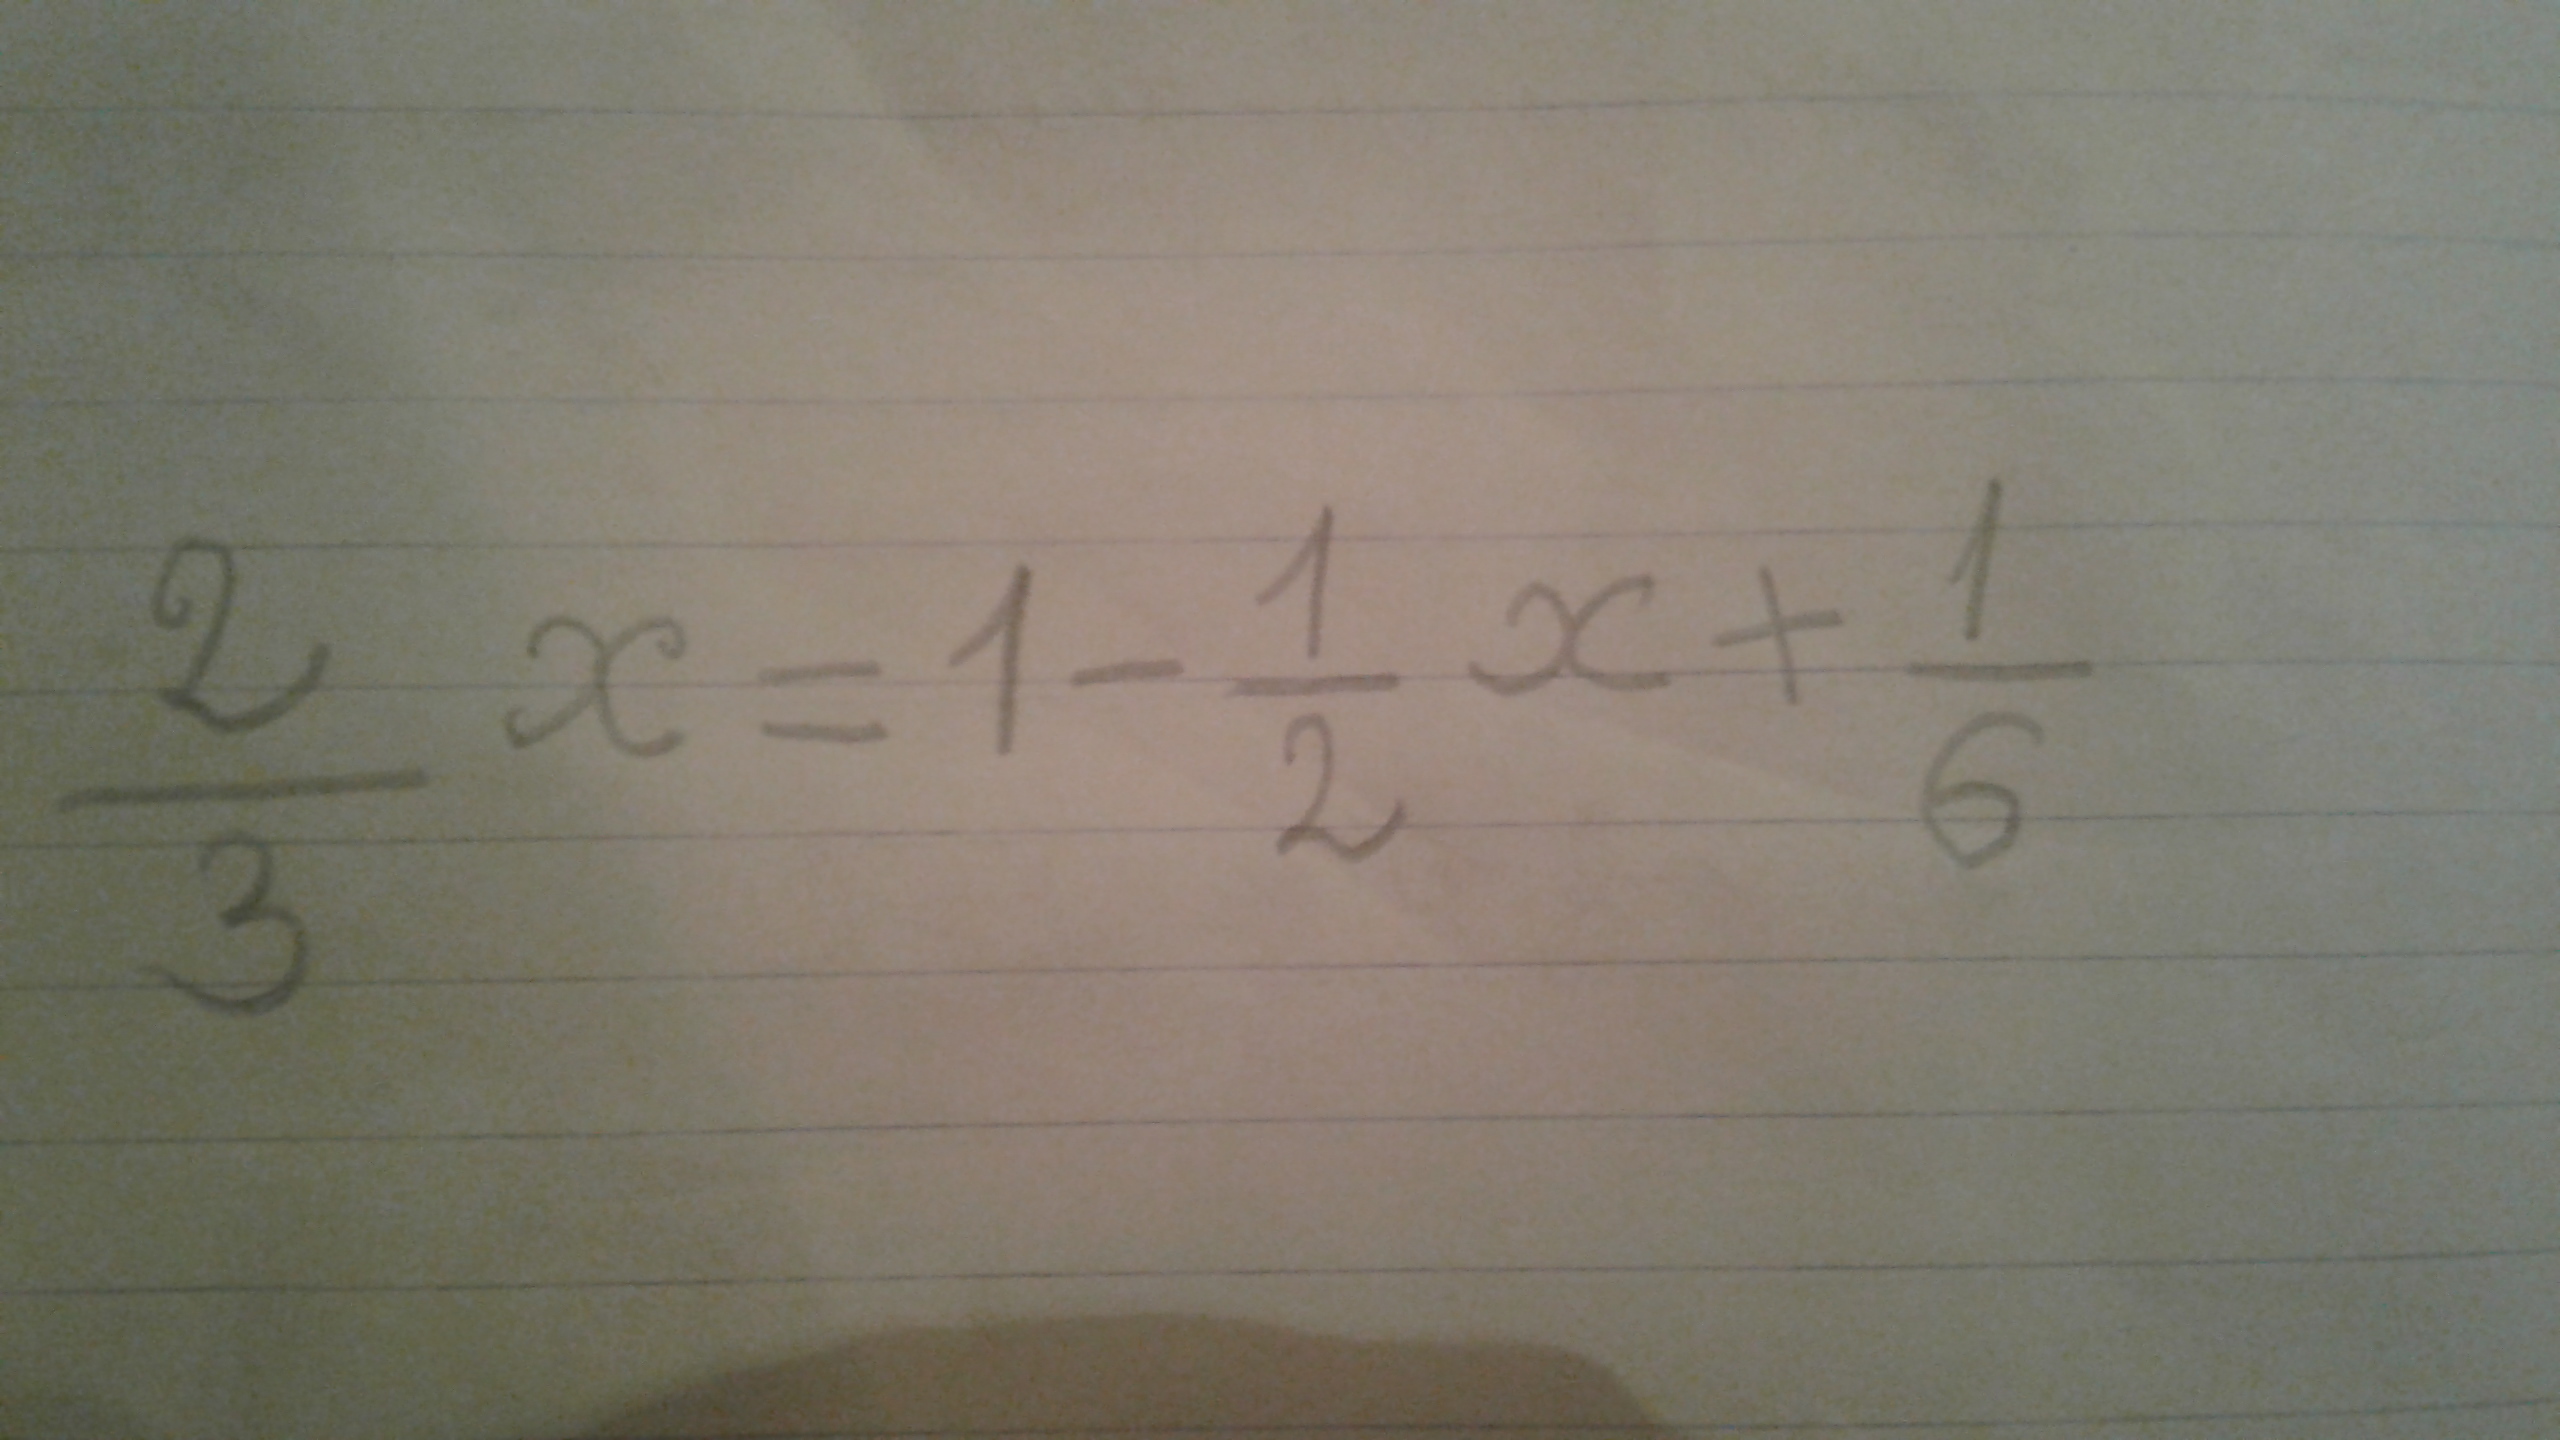 2/3 x = 1 - 1/2 x + 1/6